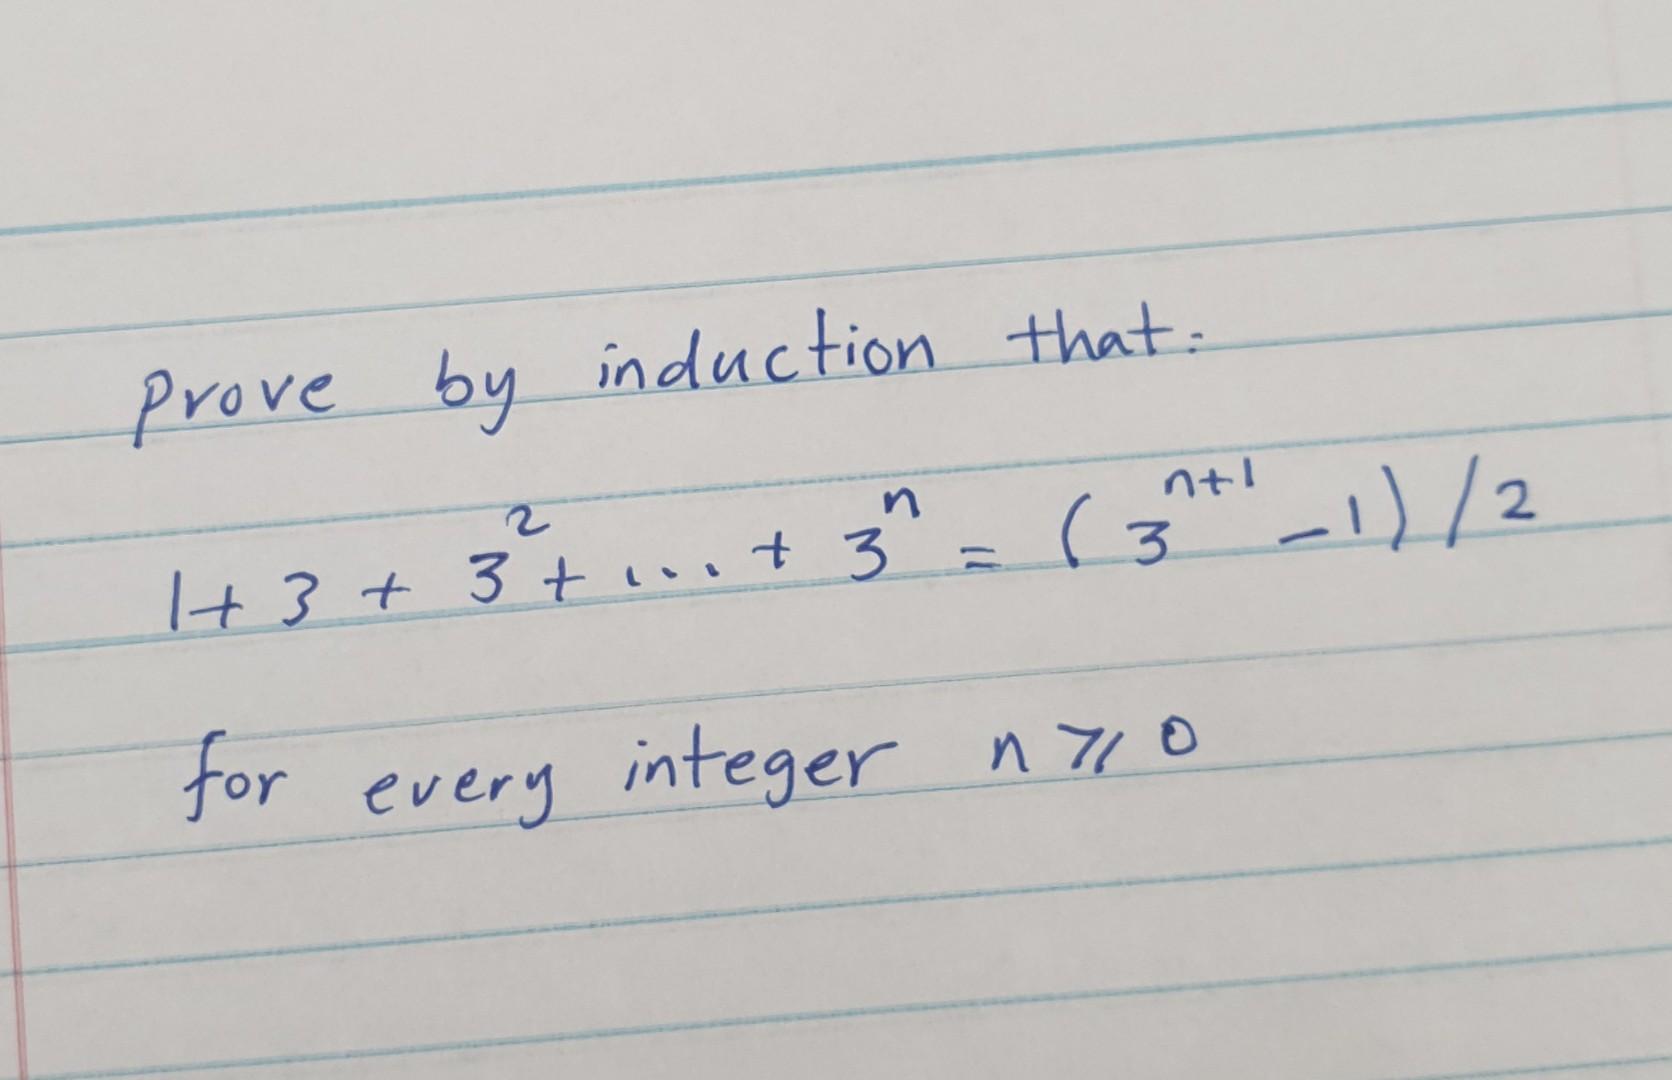 prove by induction that:
1 + 3 + 3² + ... + 3ⁿ = (3ⁿ⁺¹ - 1) / 2
for every integer n ⩾ 0